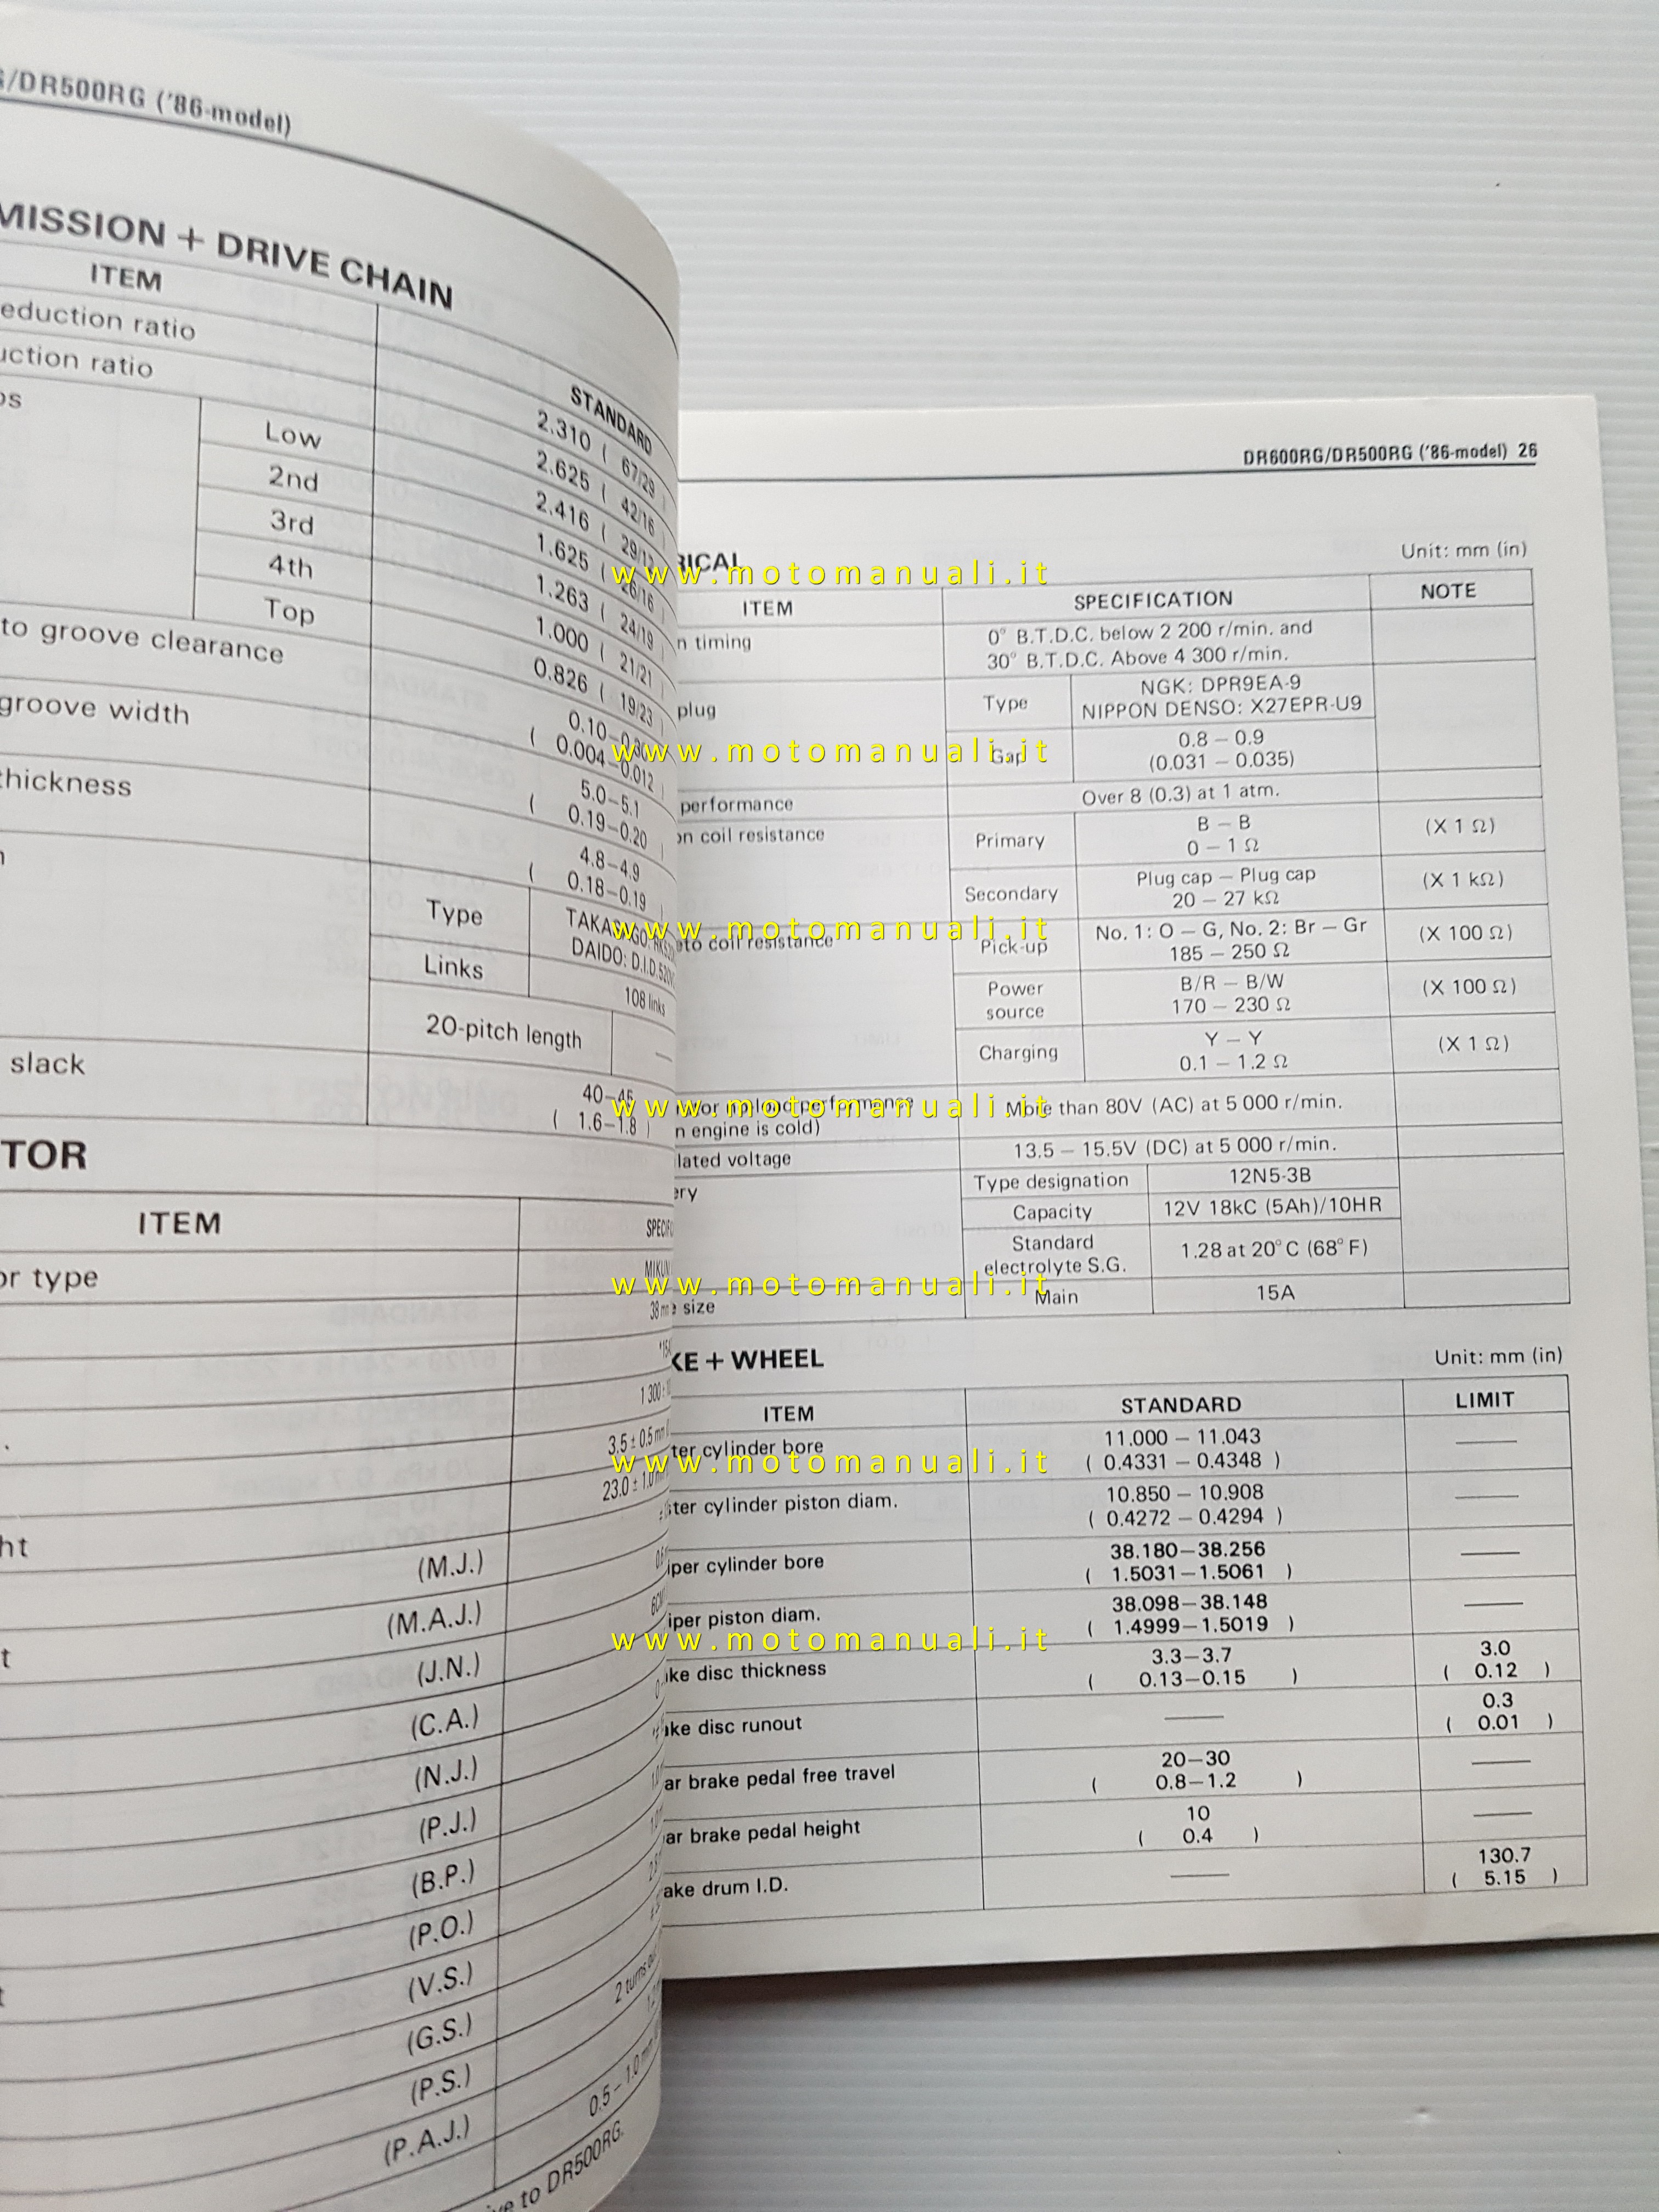 /DR500RG ('86-model)
MISSION + DRIVE CHAIN
ITEM
STANDARD
eduction ratio
2.310 ( 67/29 )
uction ratio
2.625 ( 42/16
os
Low
2.416 ( 29/12
2nd
1.625 ( 26/16 )
3rd
1.263 ( 24/19
4th
1.000 ( 21/21
Top
0.826 ( 19/23
to groove clearance
0.10–0.30
( 0.004–0.012 )
groove width
5.0–5.1
( 0.19–0.20 )
thickness
4.8–4.9
( 0.18–0.19 )
Type
DAIDO: D.I.D.520
Links
108 links
20-pitch length
—
slack
40–45
( 1.6–1.8 )
TOR
ITEM
or type
MIKUNI
38 mm
1 300 ±
3.5 ± 0.5 mm
23.0 ± 1.0
ht
(M.J.)
(M.A.J.)
t
(J.N.)
(C.A.)
(N.J.)
(P.J.)
(B.P.)
(P.O.)
t
(V.S.)
(G.S.)
2 turns
(P.S.)
(P.A.J.)
0.5 – 1.0 mm
to DR500RG.
DR600RG/DR500RG ('86-model) 26
RICAL
Unit: mm (in)
ITEM
SPECIFICATION
NOTE
n timing
0° B.T.D.C. below 2 200 r/min. and
30° B.T.D.C. Above 4 300 r/min.
plug
Type
NGK: DPR9EA-9
NIPPON DENSO: X27EPR-U9
Gap
0.8 – 0.9
(0.031 – 0.035)
performance
Over 8 (0.3) at 1 atm.
on coil resistance
Primary
B – B
0 – 1 Ω
(X 1 Ω)
Secondary
Plug cap – Plug cap
20 – 27 kΩ
(X 1 kΩ)
eto coil resistance
Pick-up
No. 1: O – G, No. 2: Br – Gr
185 – 250 Ω
(X 100 Ω)
Power
source
B/R – B/W
170 – 230 Ω
(X 100 Ω)
Charging
Y – Y
0.1 – 1.2 Ω
(X 1 Ω)
or no-load performance
n engine is cold)
More than 80V (AC) at 5 000 r/min.
lated voltage
13.5 – 15.5V (DC) at 5 000 r/min.
ery
Type designation
12N5-3B
Capacity
12V 18kC (5Ah)/10HR
Standard
electrolyte S.G.
1.28 at 20°C (68°F)
e size
Main
15A
KE + WHEEL
Unit: mm (in)
ITEM
STANDARD
LIMIT
ter cylinder bore
11.000 – 11.043
( 0.4331 – 0.4348 )
——
ter cylinder piston diam.
10.850 – 10.908
( 0.4272 – 0.4294 )
——
iper cylinder bore
38.180–38.256
( 1.5031–1.5061 )
——
iper piston diam.
38.098–38.148
( 1.4999–1.5019 )
——
ke disc thickness
3.3–3.7
( 0.13–0.15 )
3.0
( 0.12 )
ake disc runout
——
0.3
( 0.01 )
ar brake pedal free travel
20–30
( 0.8–1.2 )
——
ar brake pedal height
10
( 0.4 )
——
ake drum I.D.
——
130.7
( 5.15 )
www.motomanuali.it
www.motomanuali.it
www.motomanuali.it
www.motomanuali.it
www.motomanuali.it
www.motomanuali.it
www.motomanuali.it